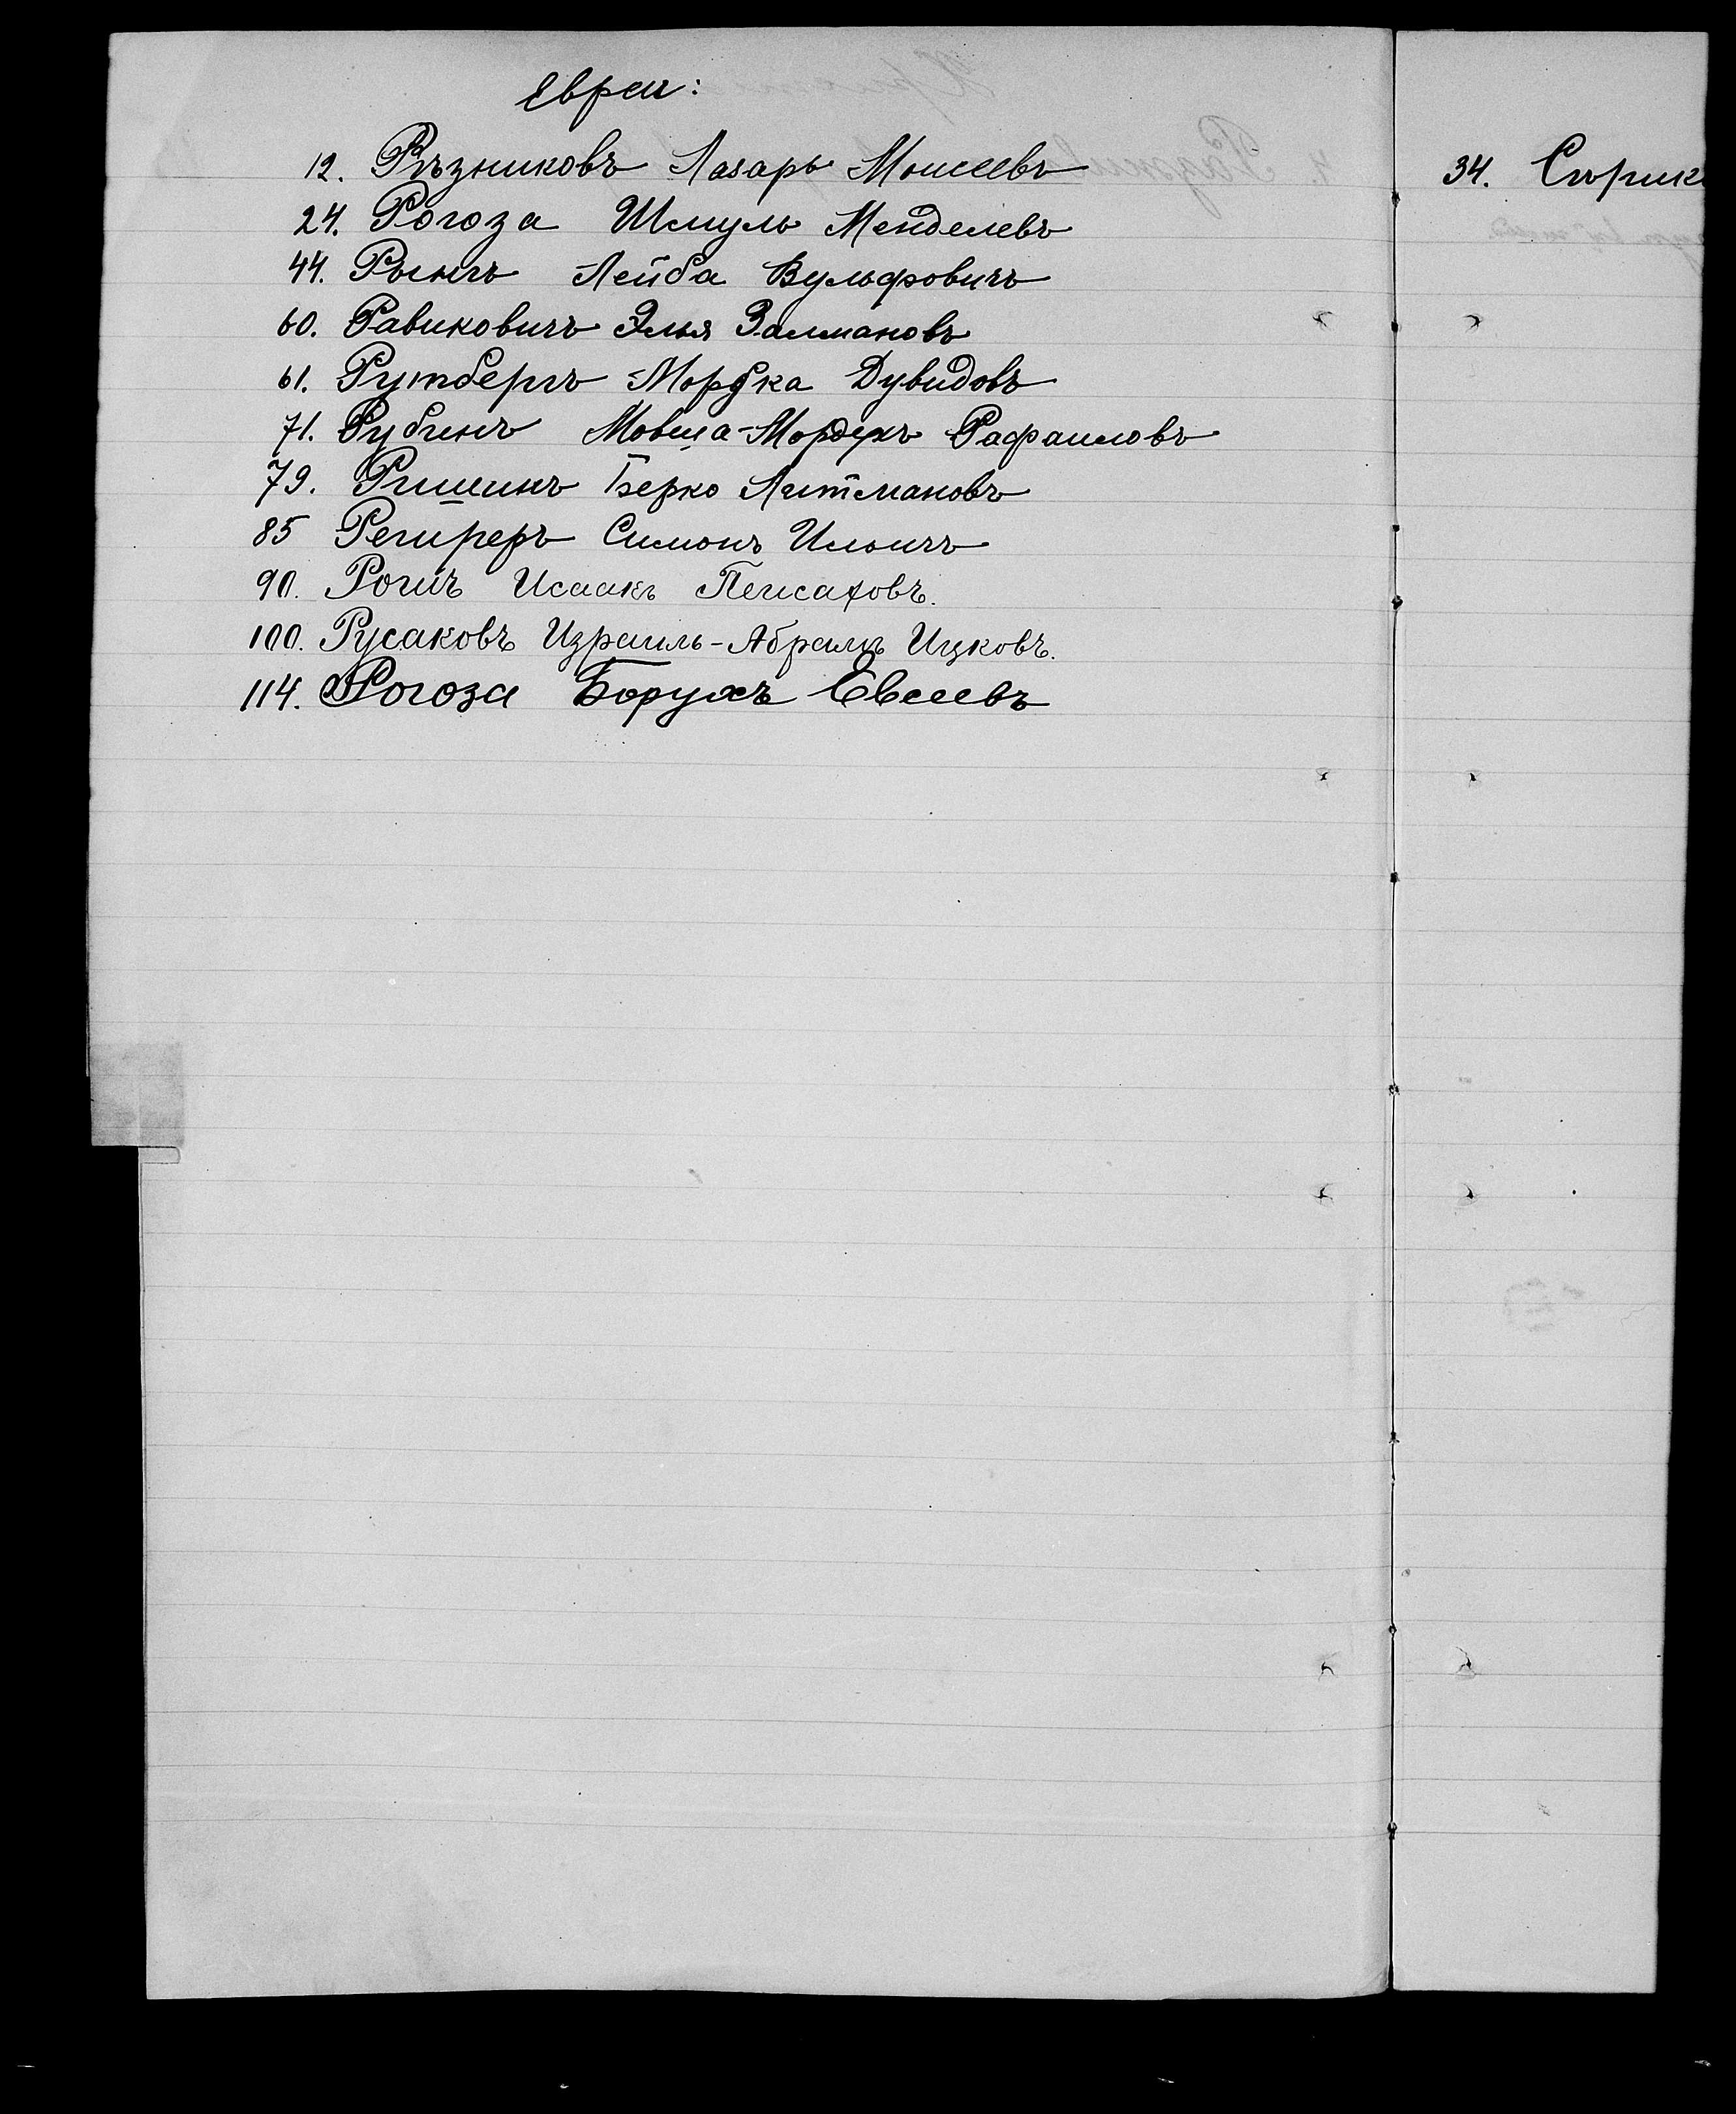 Евреи:
12. Рѣзниковъ Лазарь Моисеевъ
24. Рогоза Шмуль Менделевъ
44. Рысинъ Лейба Вульфовичъ
60. Равиковичъ Элья Залмановъ
61. Рутбергъ Мордка Дувидовъ
71. Рубинъ Мовша-Мордухъ Рафаиловъ
79. Ришинъ Берко Литмановъ
85 Рейреръ Симонъ Ильичъ
90. Исаакъ Пейсаховъ.
100. Русаковъ Израиль-Абрамъ Ицковъ.
114. Рогоза Борухъ Евсеевъ
34.